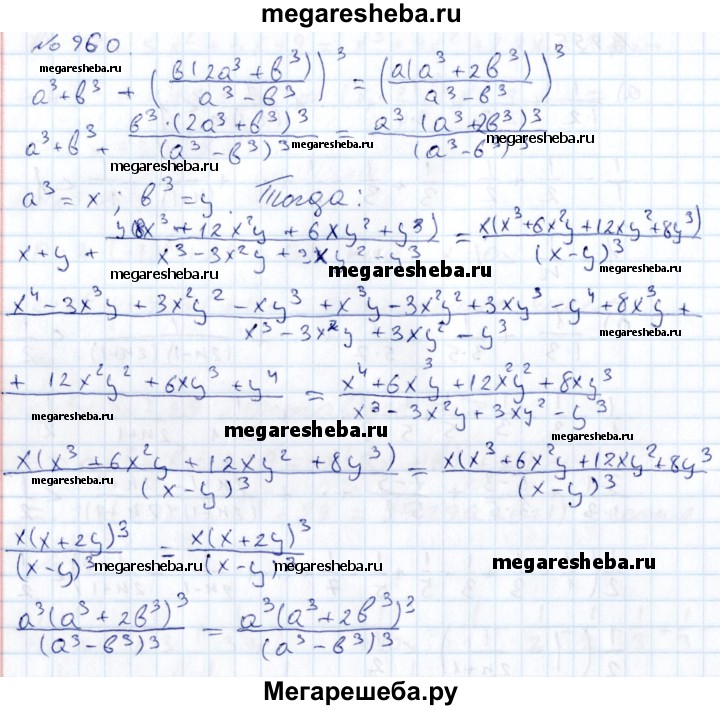 megaresheba.ru
№ 960.
megaresheba.ru
a³+b³ + (b(2a³+b³)/(a³-b³))³ = (a(a³+2b³)/(a³-b³))³
megaresheba.ru
a³+b³+ b³·(2a³+b³)³/(a³-b³)³ = a³(a³+2b³)³/(a³-b³)³
megaresheba.ru megaresheba.ru
a³=x; b³=y. Тогда:
x+y+ y(8x³+12x²y+6xy²+y³)/(x³-3x²y+3xy²-y³) = x(x³+6x²y+12xy²+8y³)/(x-y)³
megaresheba.ru megaresheba.ru
x⁴-3x³y+3x²y²-xy³+x³y-3x²y²+3xy³-y⁴+8x³y+
x³-3x²y+3xy²-y³
megaresheba.ru
+12x²y²+6xy³+y⁴ / = x⁴+6x³y+12x²y²+8xy³/(x³-3x²y+3xy²-y³)
megaresheba.ru megaresheba.ru megaresheba.ru
x(x³+6x²y+12xy²+8y³)/(x-y)³ = x(x³+6x²y+12xy²+8y³/(x-y)³
megaresheba.ru megaresheba.ru
x(x+2y)³/(x-y)³ = x(x+2y)³/(x-y)³
megaresheba.ru megaresheba.ru megaresheba.ru
a³(a³+2b³)³/(a³-b³)³ = a³(a³+2b³)³/(a³-b³)³
Мегарешеба.ру